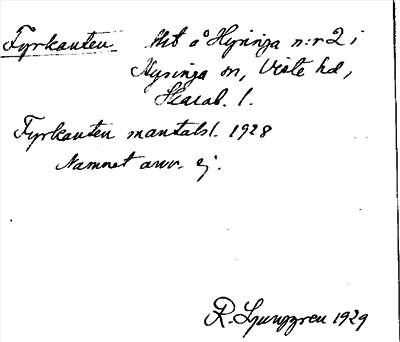 Fyrkanten lht å Hyringa n:r 2 i
Hyringa sn, Viste hd,
Skarab. l.
Fyrkanten mantalsl. 1928
Namnet anv. ej.
R. Ljunggren 1929